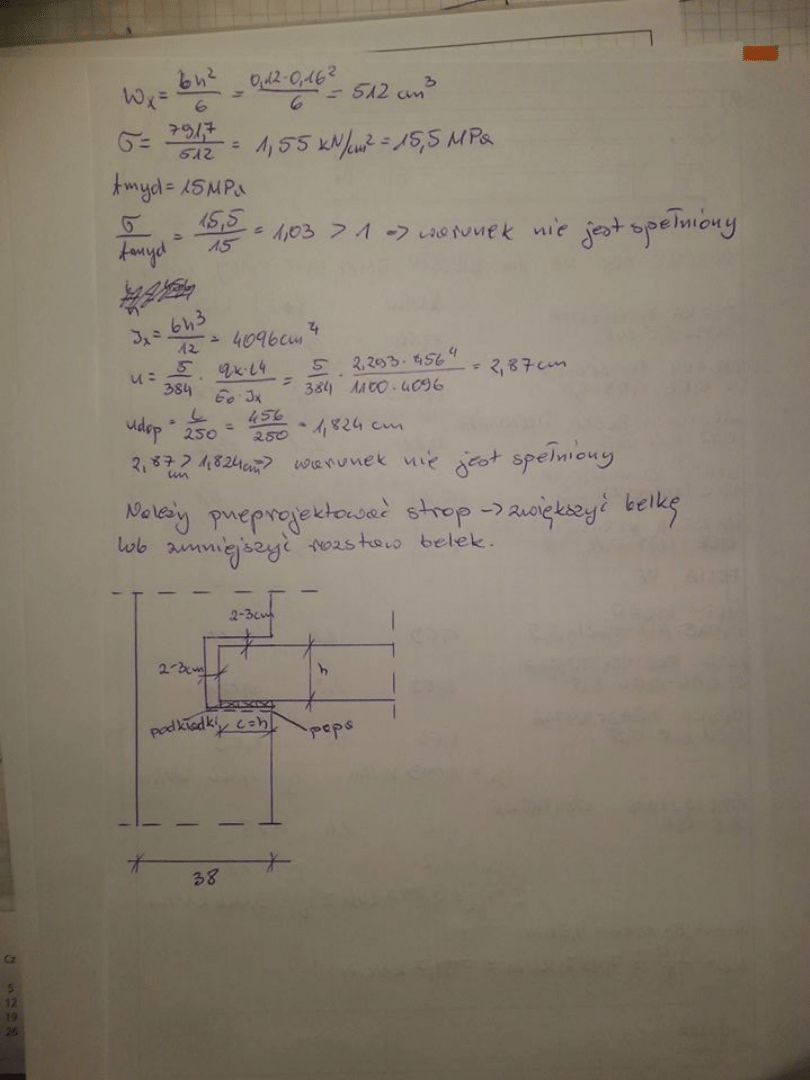 Wx = bh²/6 = 0,12·0,16²/6 = 512 cm³
σ = 791,7/512 = 1,55 kN/cm² = 15,5 MPa
fmyd = 15 MPa
σ/fmyd = 15,5/15 = 1,03 > 1 => warunek nie jest spełniony
Jx = bh³/12 = 4096 cm⁴
u = 5/384 · qk·L4/E0·Jx = 5/384 · 2,293·456⁴/1100·4096 = 2,87 cm
udop = L/250 = 456/250 = 1,824 cm
2,87 cm > 1,824 cm => warunek nie jest spełniony
Należy przeprojektować strop -> zwiększyć belkę
lub zmniejszyć rozstaw belek.
2-3cm
2-3cm
h
podkładki c=h papa
38
Cz
5
12
19
26